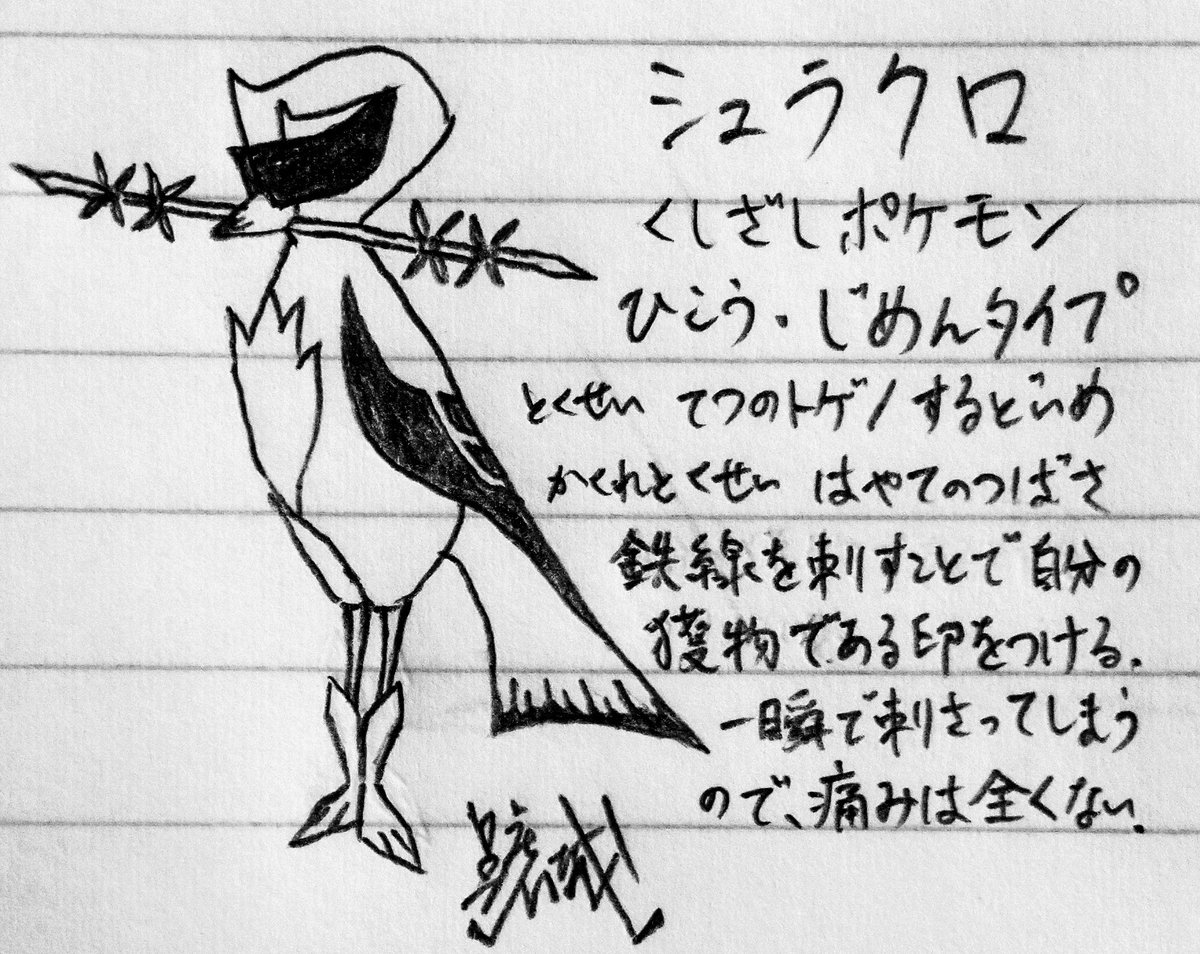 シュラクロ
くしざしポケモン
ひこう・じめんタイプ
とくせい てつのトゲ/するどいめ
かくれとくせい はやてのつばさ
鉄線を刺すことで自分の
獲物である印をつける.
一瞬で刺さってしまう
ので、痛みは全くない.